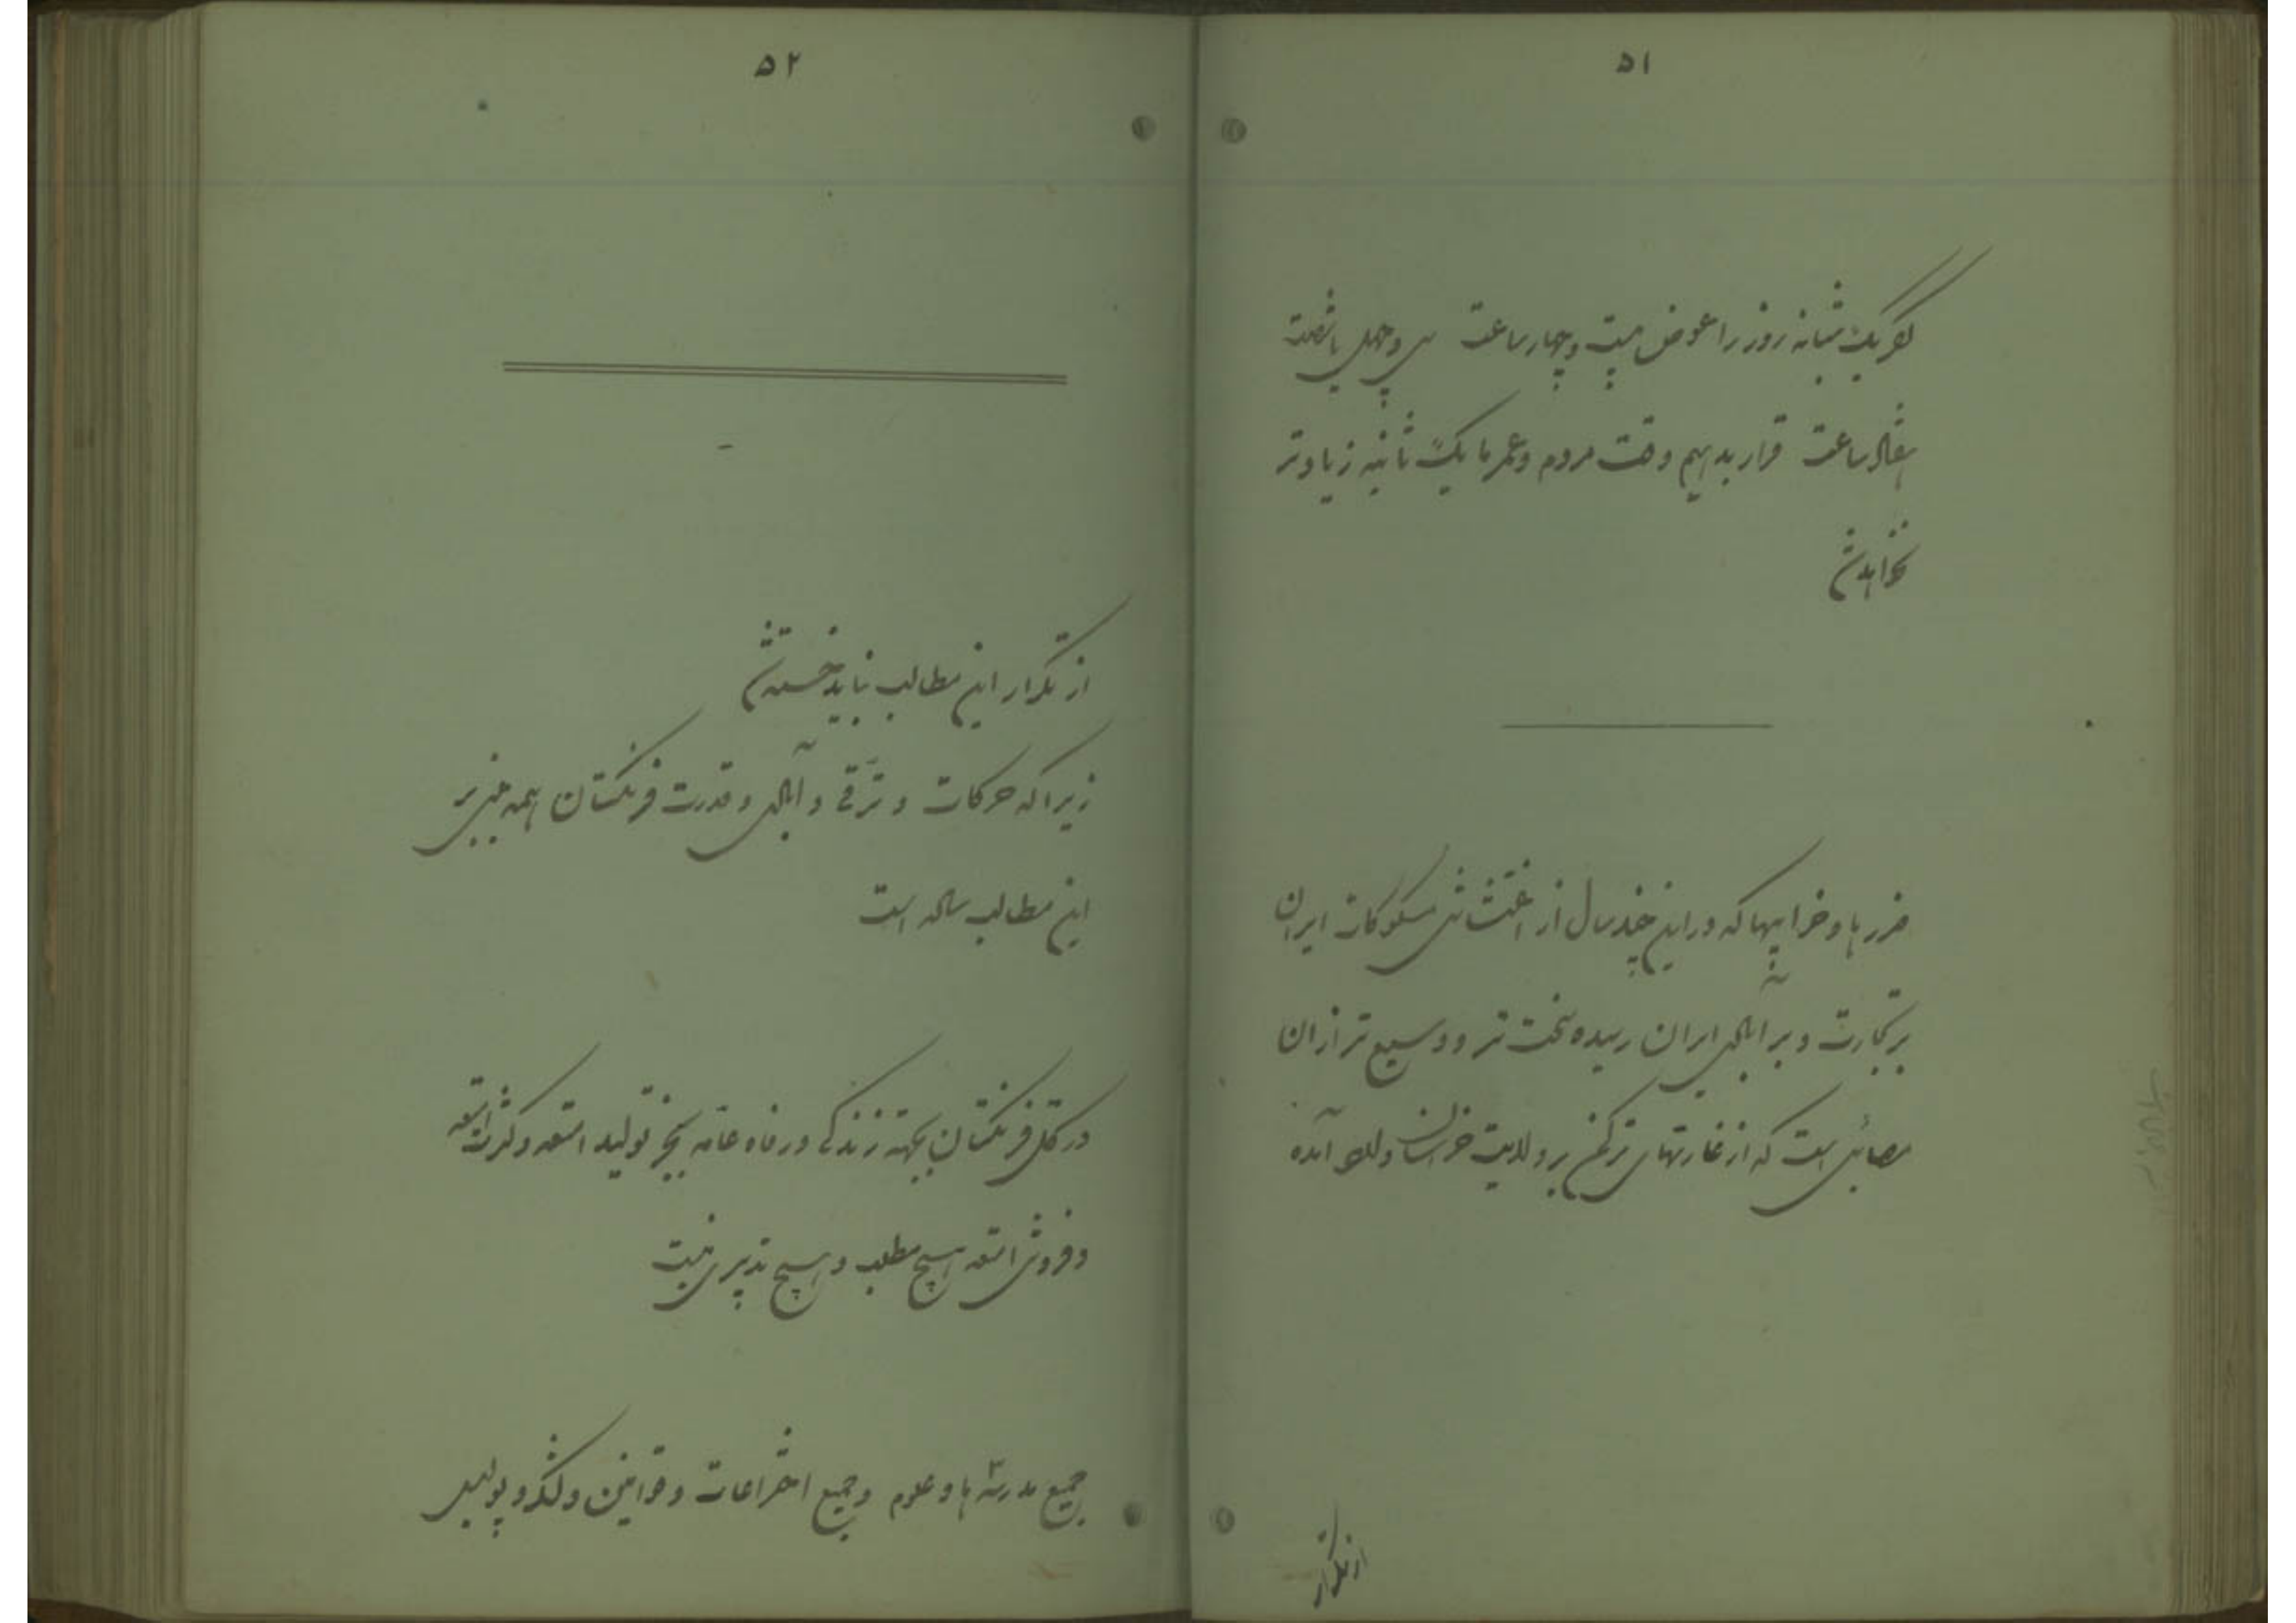 ۵۱
اگر یک شبانه روز را عوض بیست و چهار ساعت سی و چهل یا شصت
هفتاد ساعت قرار بدهیم وقت مردم و عمر ما یک ثانیه زیادتر
نخواهد شد
ضررها و خرابیها که در این چند سال از اغتشاش مسکوکات ایران
بر تجارت و بر اهالی ایران رسیده سخت تر و وسیع تر از ان
مصائبی است که از غارتهای ترکمن بر ولایت خراسان آمده
از تکرار
۵۲
از تکرار این مطالب نباید خسته شد
زیرا که حرکات و ترقی و آبادی و قدرت فرنگستان همه مبنی بر
این مطالب ساده است
در کل فرنگستان بجهة زندگی و رفاه عامه بجز تولید امتعه و کثرت امتعه
و فروش امتعه هیچ مطلب و هیچ تدبیری نیست
جمیع مدرسه ها و علوم و جمیع اختراعات و قوانین و لشکر و پولیس